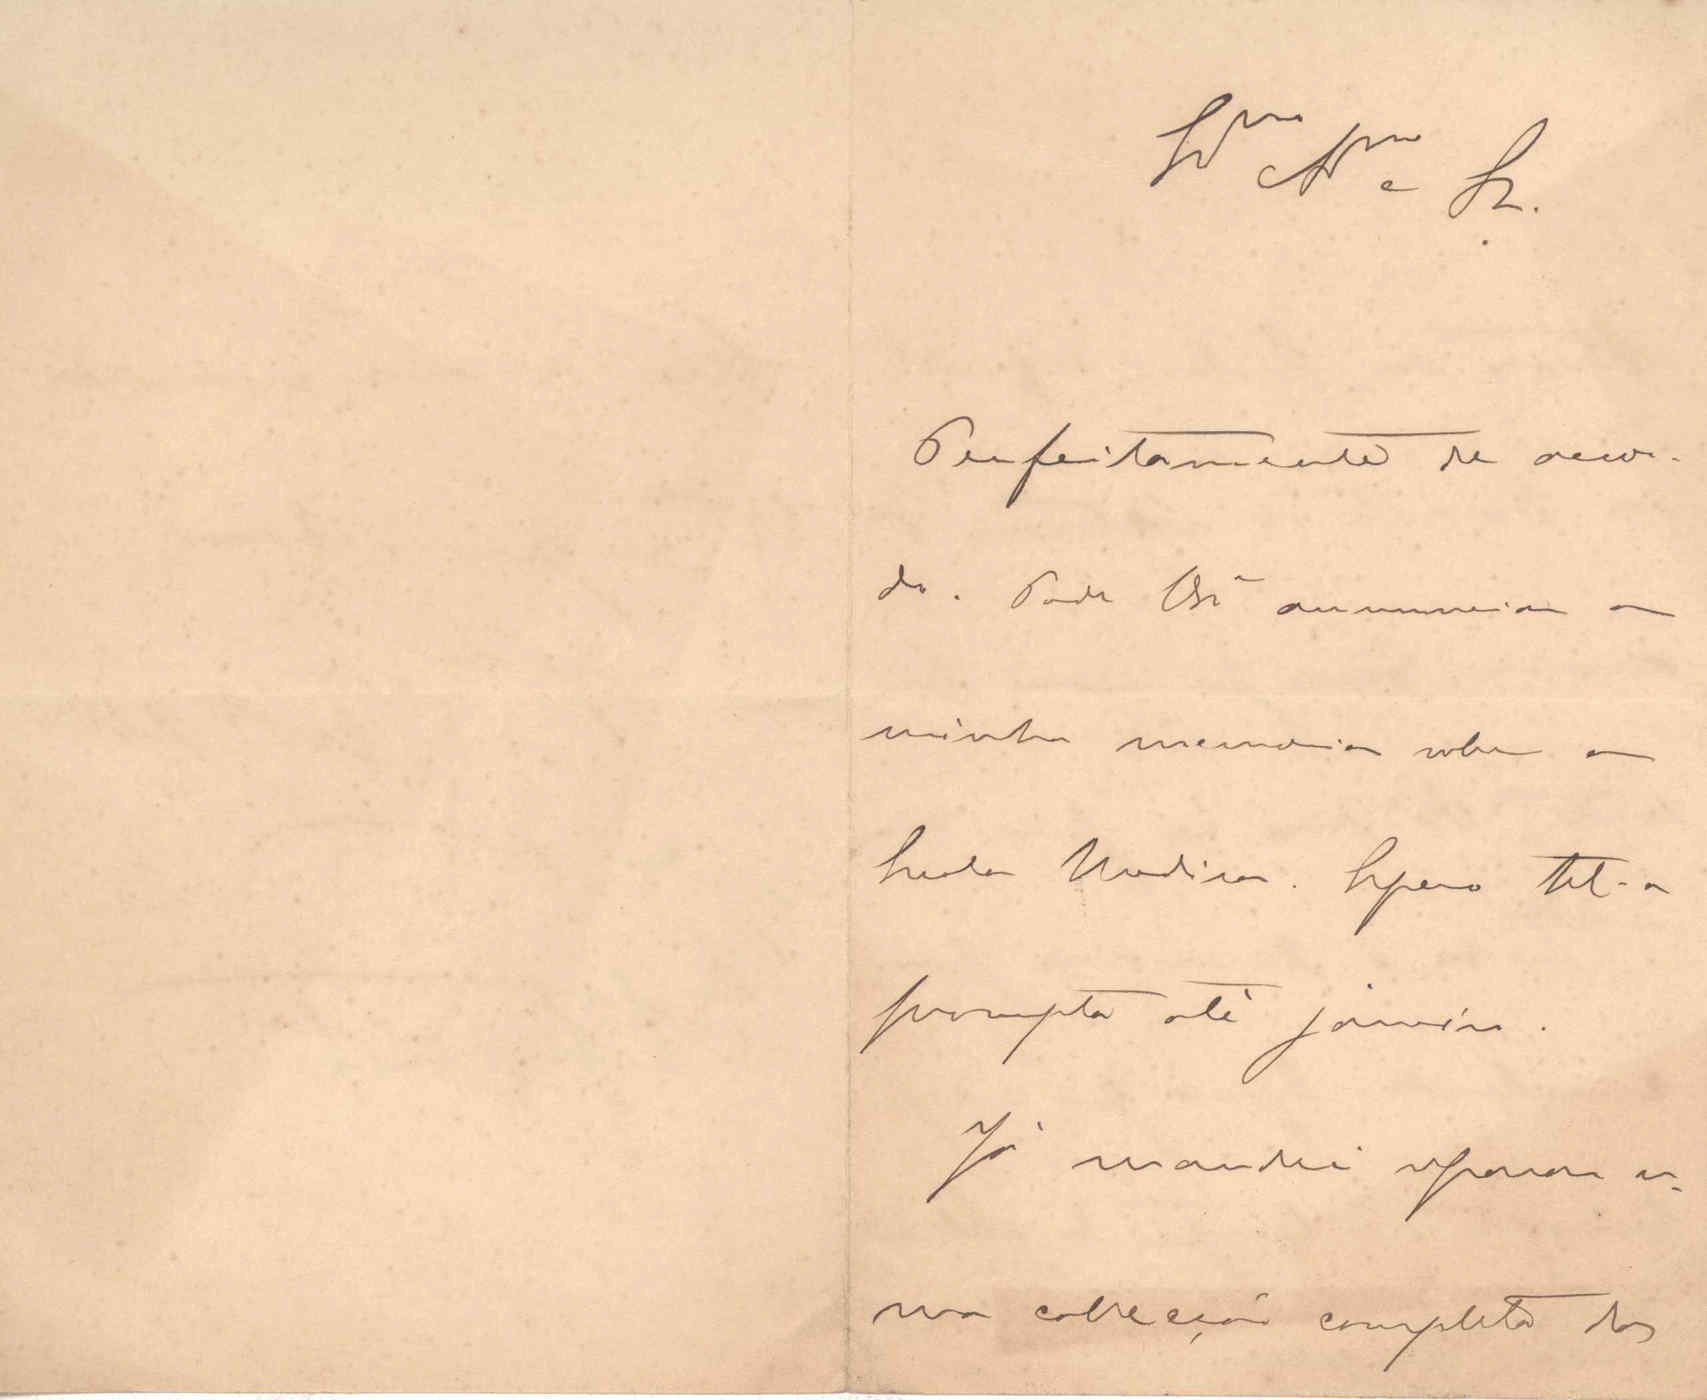 Exmo Amo e Sr.
Perfeitamente de accor-
do. Pode V. Sa annunciar a
minha memoria sobre a
Lucta Medica. Espero tel-a
prompta até janeiro.
Já mandei separar u-
ma collecção completa das